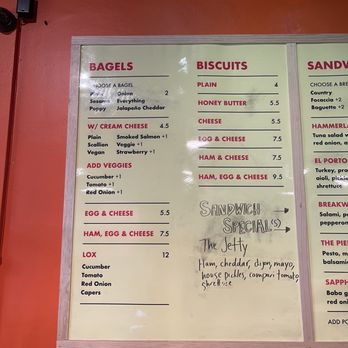 BAGELS
CHOOSE A BAGEL
Plain Onion 2
Sesame Everything
Poppy Jalapeño Cheddar
W/ CREAM CHEESE 4.5
Plain Smoked Salmon +1
Scallion Veggie +1
Vegan Strawberry +1
ADD VEGGIES
Cucumber +1
Tomato +1
Red Onion +1
EGG & CHEESE 5.5
HAM, EGG & CHEESE 7.5
LOX 12
Cucumber
Tomato
Red Onion
Capers
BISCUITS
PLAIN 4
HONEY BUTTER 5.5
CHEESE 5.5
EGG & CHEESE 7.5
HAM & CHEESE 7.5
HAM, EGG & CHEESE 9.5
SANDWICH
SPECIAL(S)
The Jetty
Ham, cheddar, dijon, mayo,
house pickles, compari tomato,
shrettuce
SANDW
CHOOSE A BRE
Country
Focaccia +2
Baguette +2
HAMMERLA
Tuna salad w
red onion, a
EL PORTO
Turkey, pro
aioli, pickle
shrettuce
BREAKW
Salami, p
peppers,
THE PIE
Pesto, m
balsami
SAPPH
Baba g
red on
ADD PO